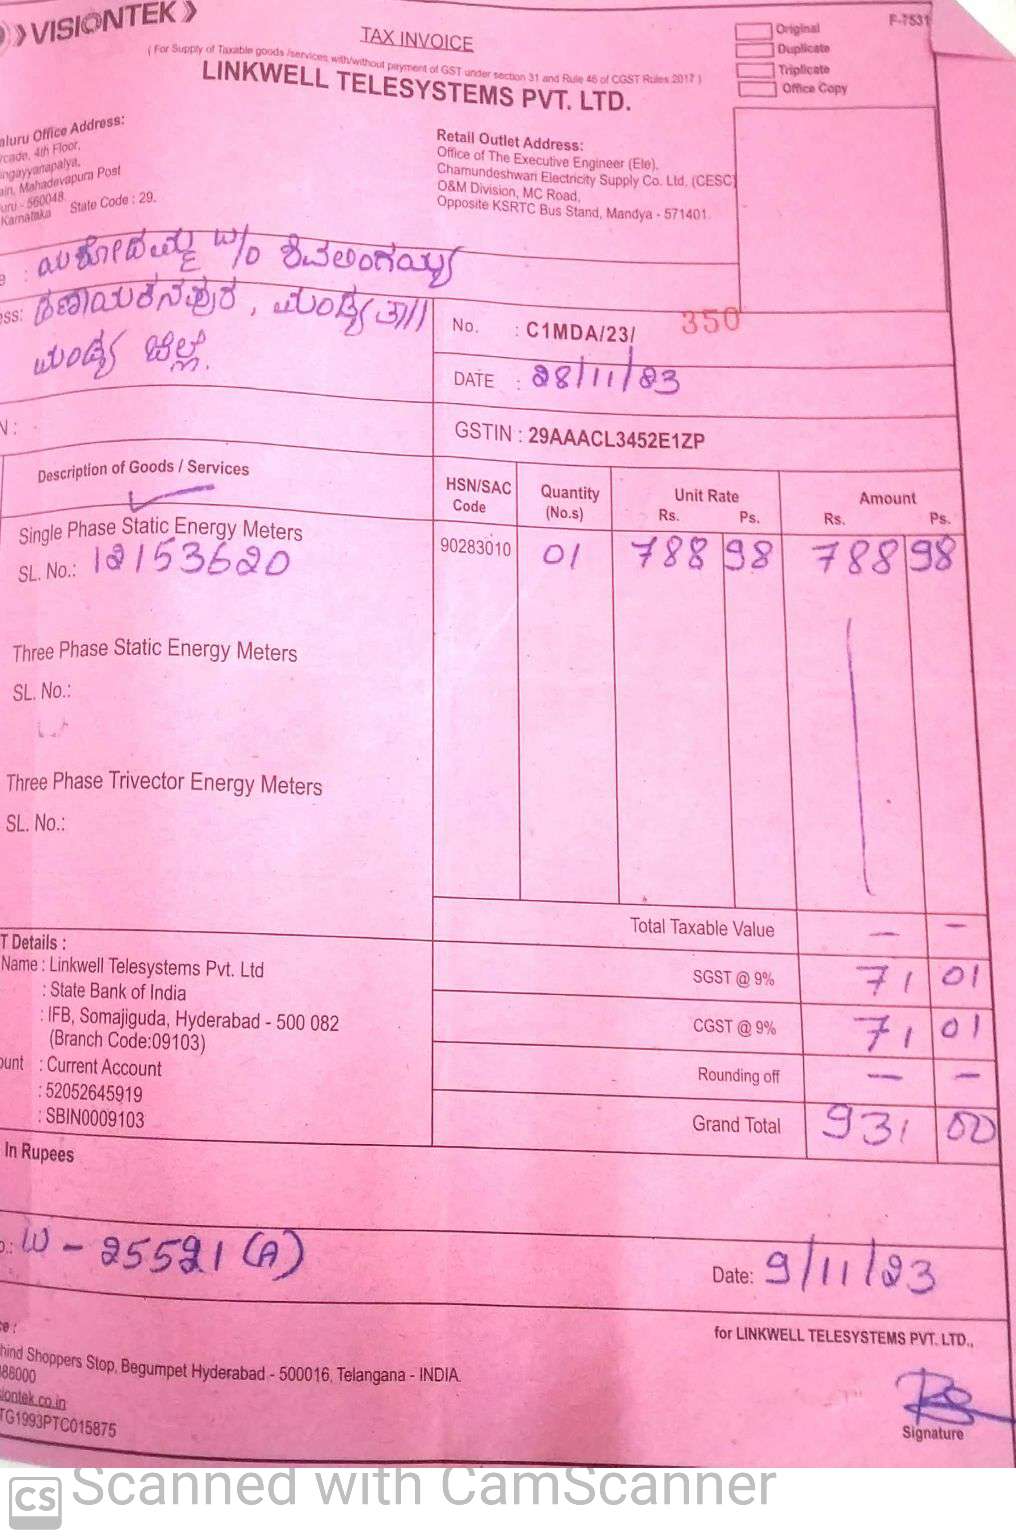 VISIONTEK
F-7531
TAX INVOICE
( For Supply of Taxable goods /services with/without payment of GST under section 31 and Rule 46 of CGST Rules 2017 )
LINKWELL TELESYSTEMS PVT. LTD.
Original
Duplicate
Triplicate
Office Copy
aluru Office Address:
rcade, 4th Floor,
ngayyanapalya,
ain, Mahadevapura Post
uru - 560048.
Karnataka State Code : 29.
Retail Outlet Address:
Office of The Executive Engineer (Ele),
Chamundeshwari Electricity Supply Co. Ltd, (CESC)
O&M Division, MC Road,
Opposite KSRTC Bus Stand, Mandya - 571401.
e : ಯಶೋದಮ್ಮ W/o ಶಿವಲಿಂಗಯ್ಯ
ess: ಹಣಾಯಕನಪುರ, ಮಂಡ್ಯ ತಾ//
ಮಂಡ್ಯ ಜಿಲ್ಲೆ.
No. : C1MDA/23/ 350
DATE : 28/11/23
N :
GSTIN : 29AAACL3452E1ZP
Description of Goods / Services
HSN/SAC Code
Quantity (No.s)
Unit Rate Rs. Ps.
Amount Rs. Ps.
Single Phase Static Energy Meters
SL. No.: 12153620
90283010 01 788 98 788 98
Three Phase Static Energy Meters
SL. No.:
Three Phase Trivector Energy Meters
SL. No.:
Total Taxable Value — —
T Details :
Name : Linkwell Telesystems Pvt. Ltd
: State Bank of India
: IFB, Somajiguda, Hyderabad - 500 082
(Branch Code:09103)
ount : Current Account
: 52052645919
: SBIN0009103
SGST @ 9% 71 01
CGST @ 9% 71 01
Rounding off — —
Grand Total 931 00
In Rupees
o.: W - 25521 (A)
Date: 9/11/23
for LINKWELL TELESYSTEMS PVT. LTD.,
ce :
hind Shoppers Stop, Begumpet Hyderabad - 500016, Telangana - INDIA.
886000
siontek.co.in
TG1993PTC015875
Signature
CS Scanned with CamScanner